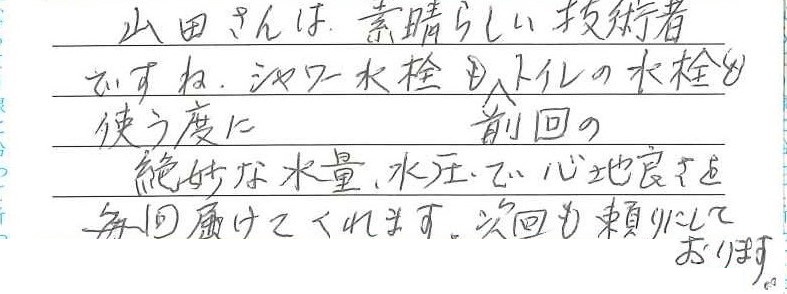 山田さんは、素晴らしい技術者
ですね。シャワー水栓もトイレの水栓も
使う度に 前回の
絶妙な水量、水圧で心地良さを
毎回届けてくれます。次回も頼りにして
おります。